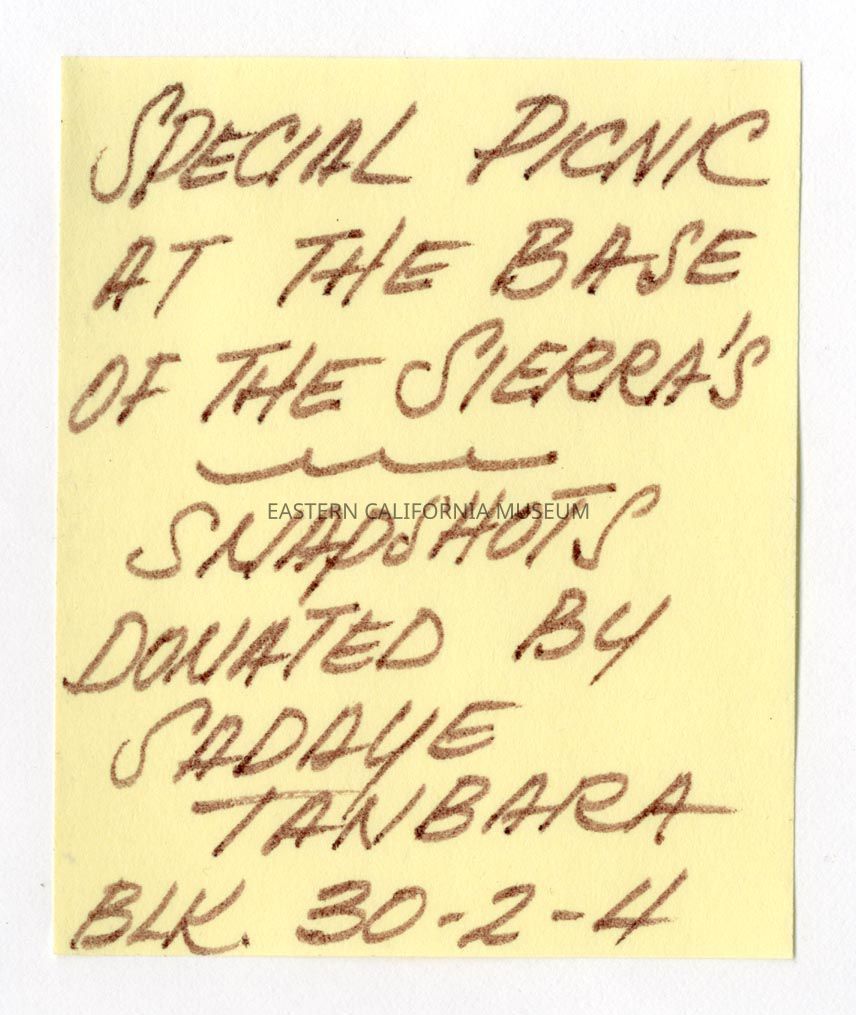 SPECIAL PICNIC
AT THE BASE
OF THE SIERRA'S
EASTERN CALIFORNIA MUSEUM
SNAPSHOTS
DONATED BY
SADAYE
TANBARA
BLK. 30-2-4